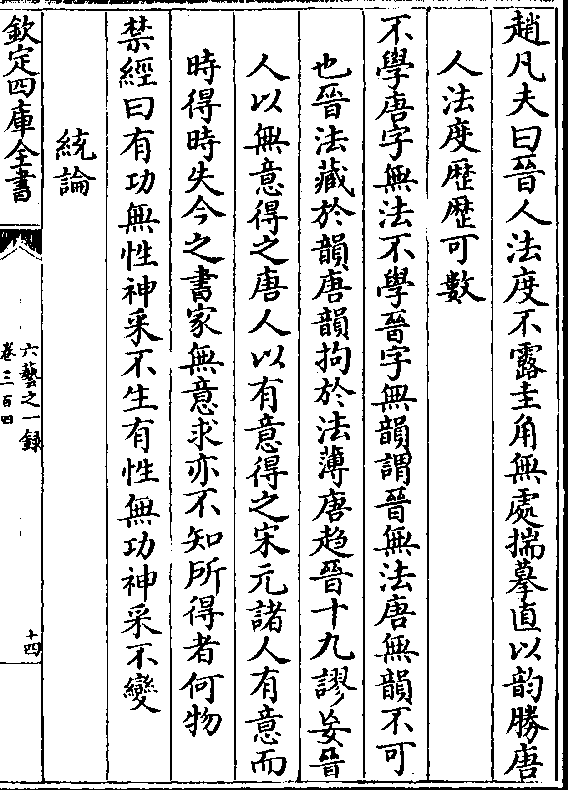 趙凡夫曰晉人法度不露圭角無處揣摹直以韵勝唐
人法度歴歴可數
不學唐字無法不學晉字無韻謂晉無法唐無韻不可
也晉法藏於韻唐韻拘於法薄唐趋晉十九謬妄晉
人以無意得之唐人以有意得之宋元諸人有意而
時得時失今之書家無意求亦不知所得者何物
禁經曰有功無性神采不生有性無功神采不變
統論
欽定四庫全書
六藝之一録
卷三百四
十四